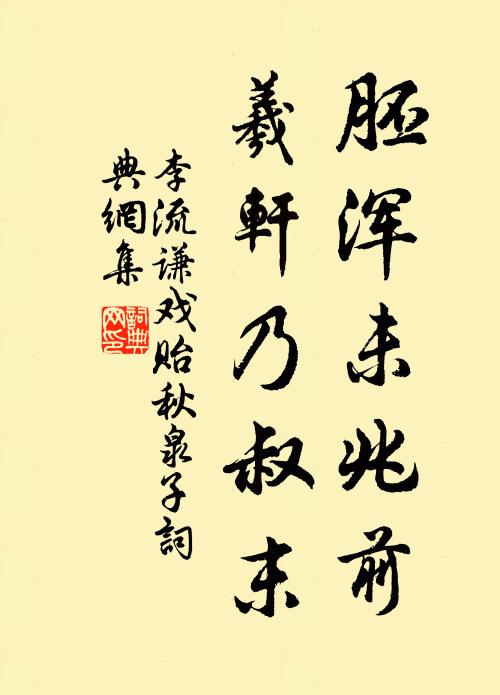 胚浑未兆前
羲軒乃叔末
李流谦戏贻秋泉子詞
典網集
詞典
网印